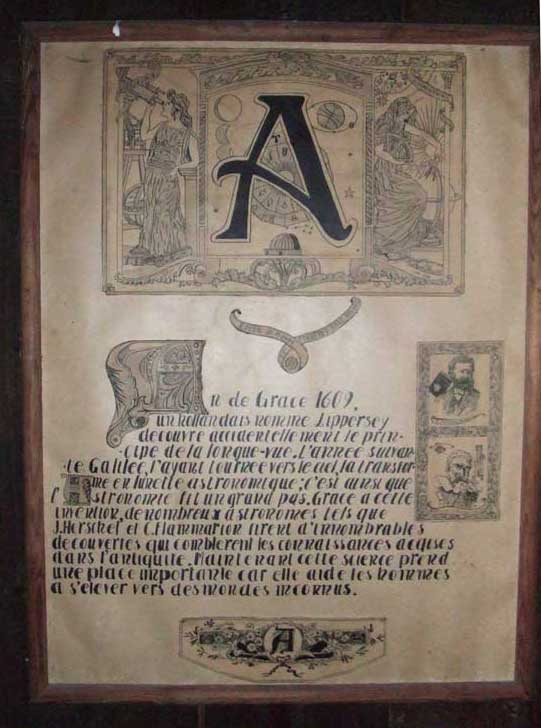 A
An de Grace 1609,
un hollandais nommé Lippersey
découvre accidentellement le prin-
cipe de la longue-vue. L'année suivan-
te Galilée, l'ayant tournée vers le ciel, la transfor-
me en lunette astronomique; c'est ainsi que
l'Astronomie fit un grand pas. Grace à cette
invention, de nombreux astronomes tels que
J. Herschel et C. Flammarion firent d'innombrables
découvertes qui comblèrent les connaissances acquises
dans l'antiquité. Maintenant cette science prend
une place importante car elle aide les hommes
à s'élever vers des mondes inconnus.
A